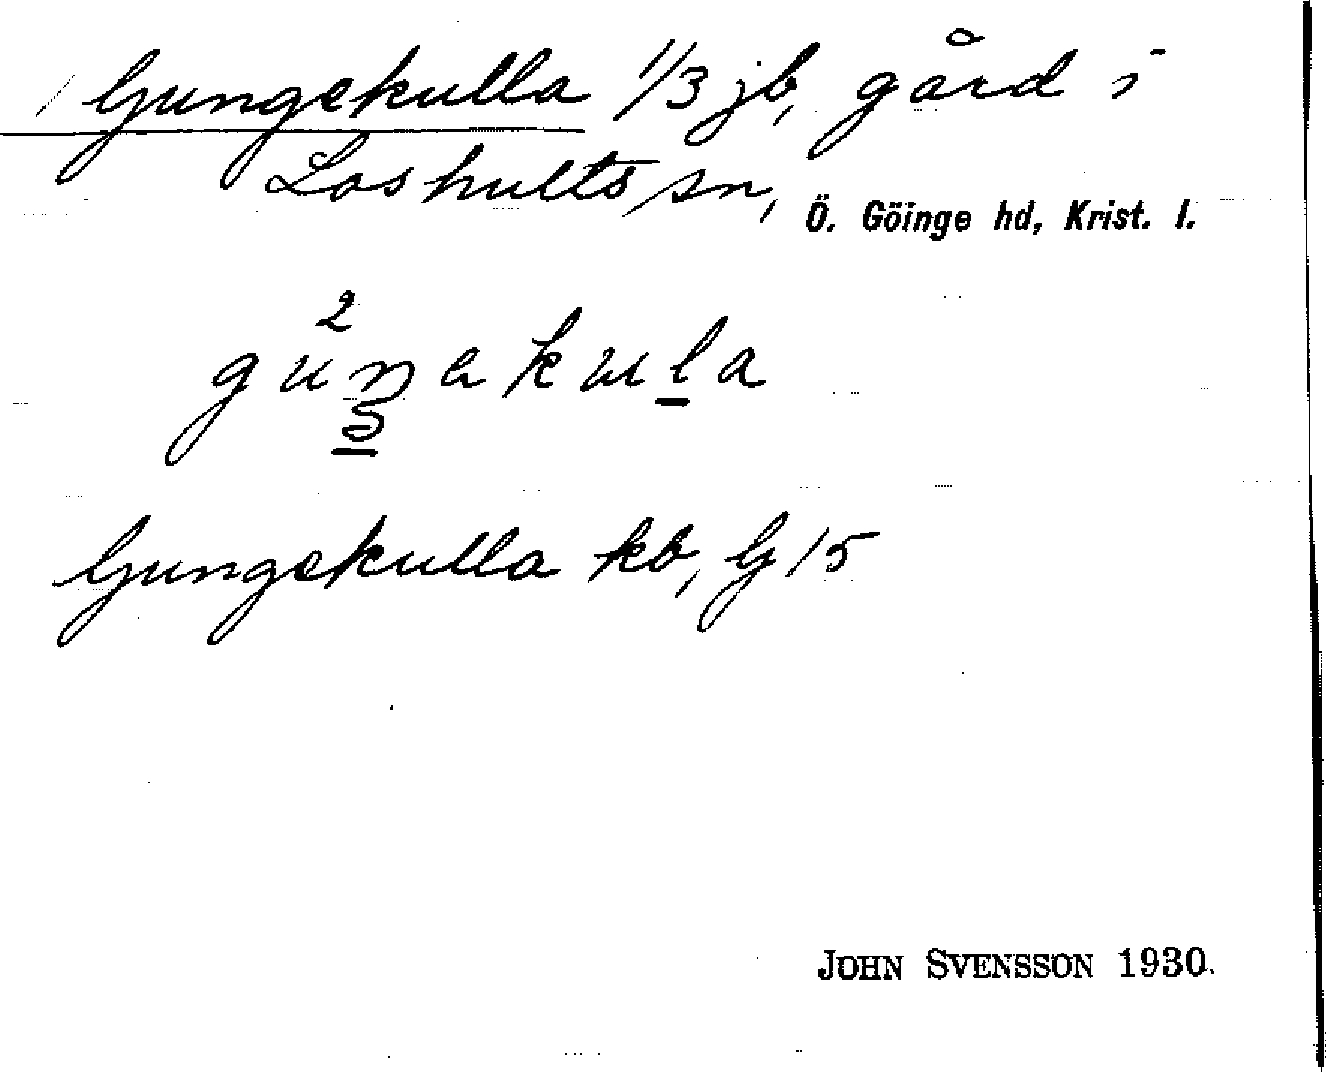 Gungekulla 1/3 jb, gård i
Loshults sn, Ö. Göinge hd, Krist. l.
2
guŋakula
5
Gungekulla kb, G 15
JOHN SVENSSON 1930.